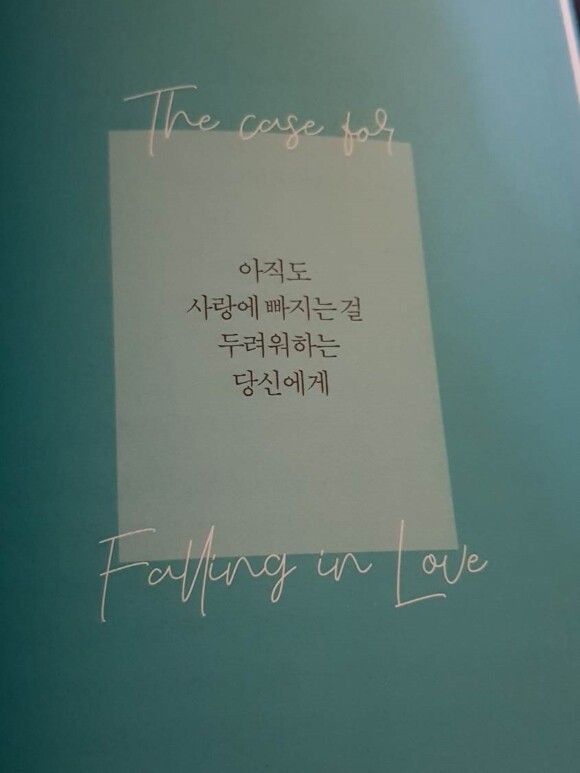 The case for
아직도
사랑에 빠지는 걸
두려워하는
당신에게
Falling in Love